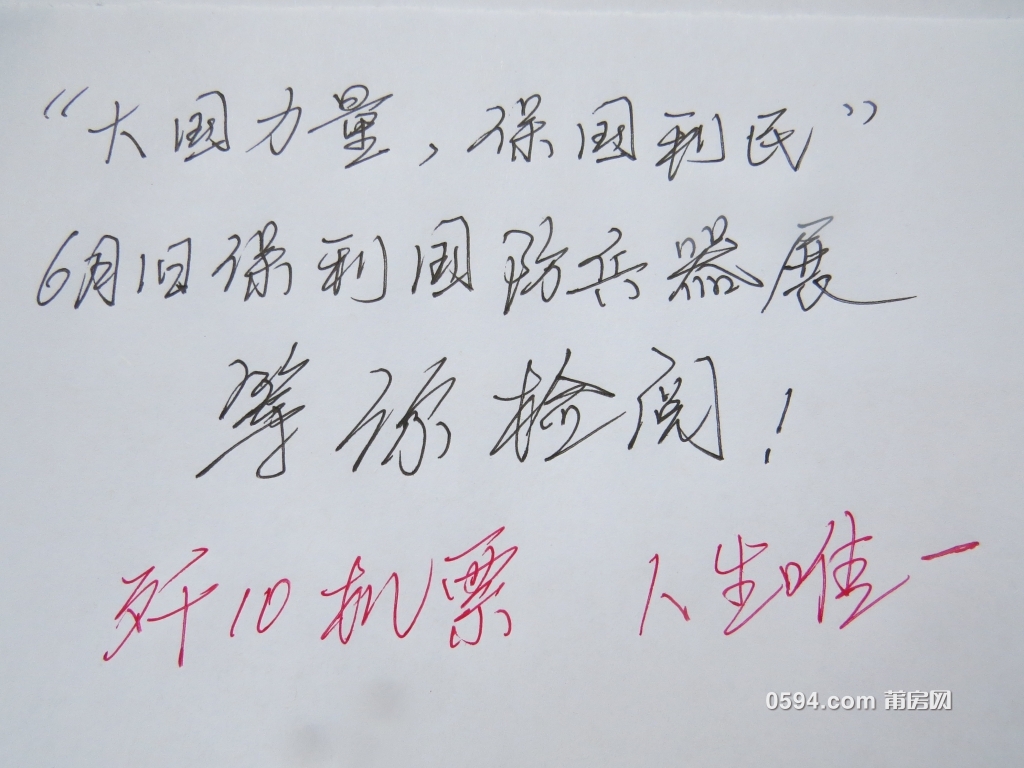 “大国力量，保国利民”
6月1日保利国防兵器展
等你检阅！
歼10机票 人生唯一
0594.com 莆房网